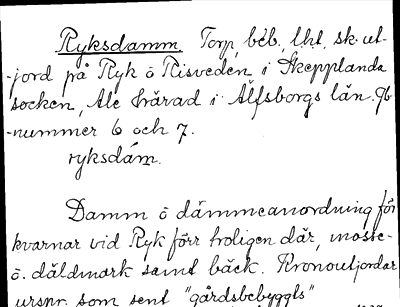 Ryksdamm, Torp, beb., lht, sk. ut-
-jord på Ryk ö Risveden i Skepplanda
socken, Ale härad i Älfsborgs län. Qb
-nummer 6 och 7.
ryksdám.
Damm o dämmeanordning för
kvarnar vid Ryk förr troligen där, mosse-
o. däldmark samt bäck. Kronoutjordar
urspr. som sent "gårdsbebyggts"